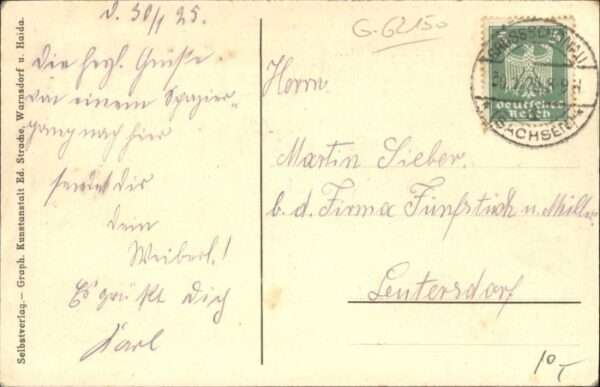 d. 30/1 25.
Die herzl. Grüße
von einem Spazier-
gang nach hier
sendet dir
dein
Weiberl.!
Es grüßt Dich
Karl
G-62150
Herrn
Martin Lieber.
b. d. Firma Fünfstück u. Müller
Leutersdorf
10,-
GROSSSCHÖNAU
(SACHSEN)
Deutsches
Reich
Selbstverlag.— Graph. Kunstanstalt Ed. Strache, Warnsdorf u. Haida.